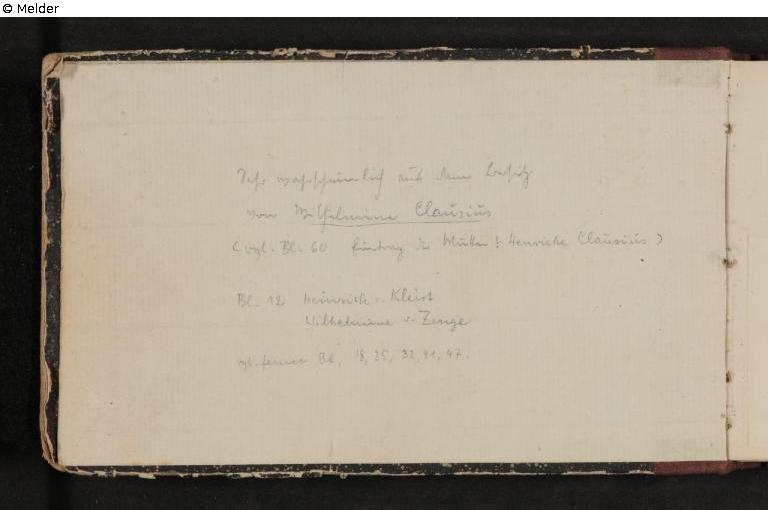 © Melder
Sehr wahrscheinlich aus dem Besitz
von Wilhelmine Clausius
(vgl. Bl. 60 Eintrag der Mutter: Henriette Clausius)
Bl. 12 Heinrich v. Kleist
Wilhelmine v. Zenge
vgl. ferner Bl. 18, 25, 32, 41, 47.